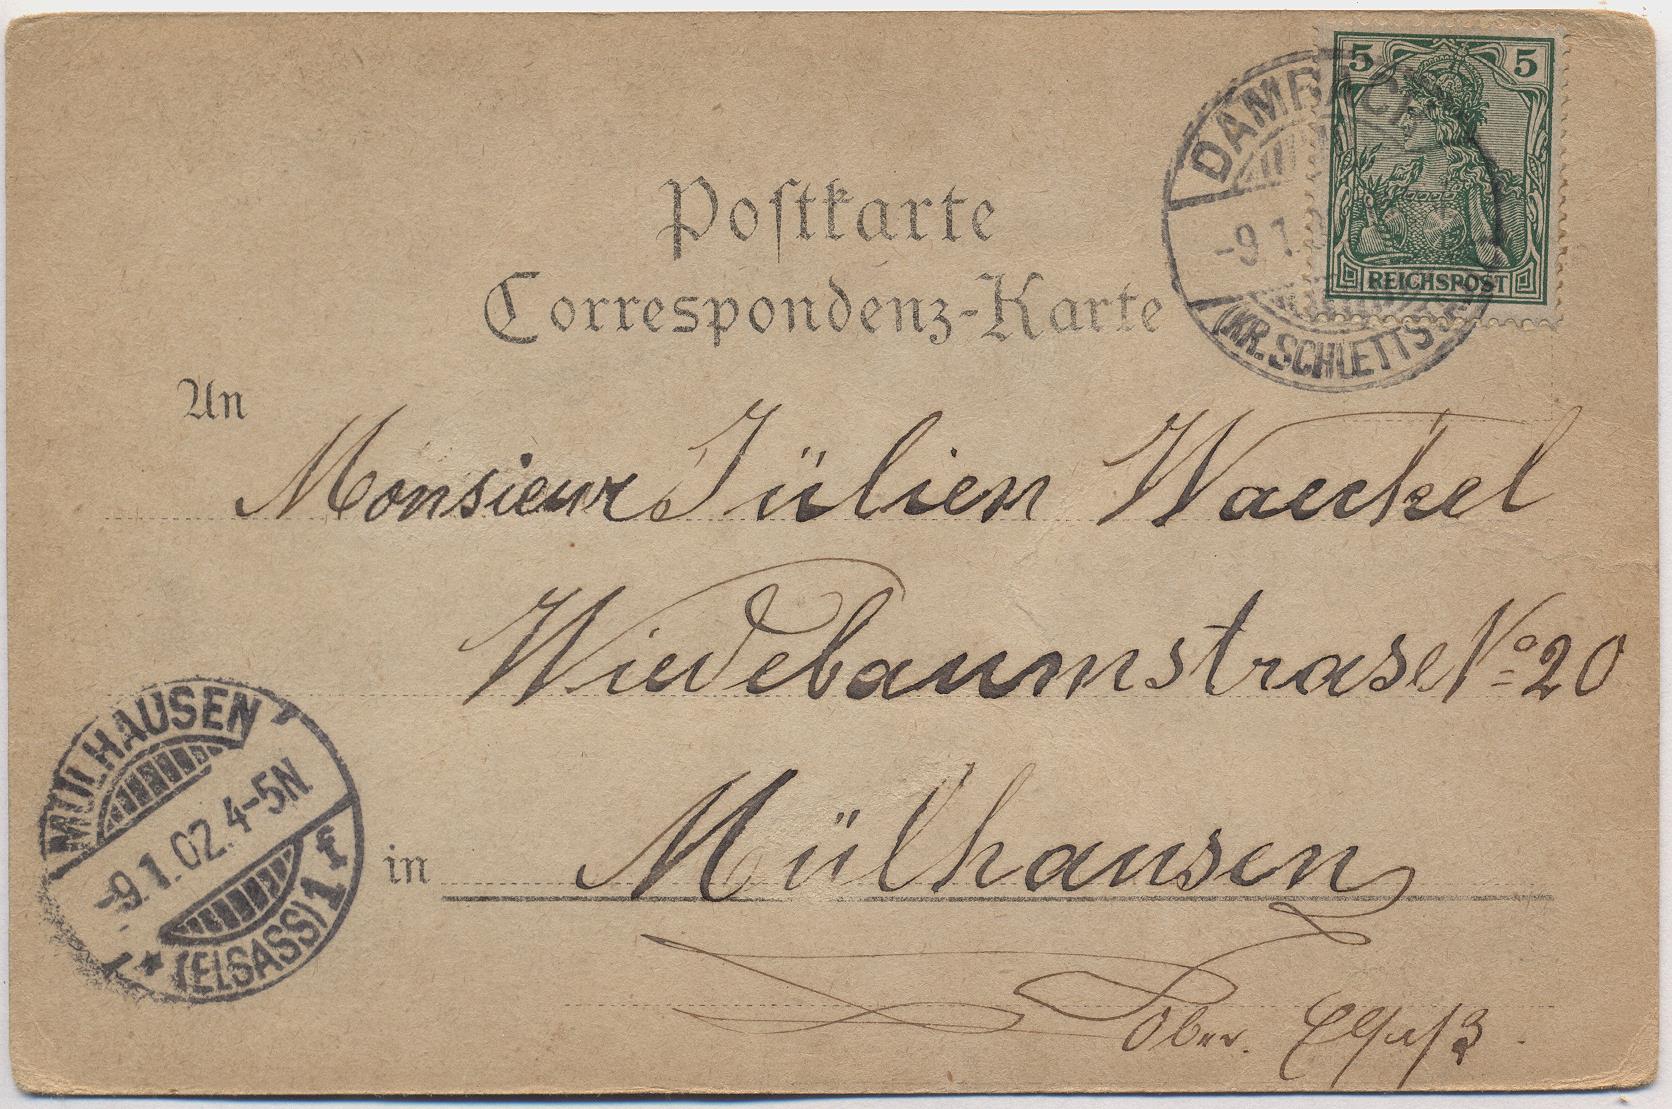 5 5
REICHSPOST
DAMBACH
-9.1.
(KR. SCHLETTST
Postkarte
Correspondenz-Karte
An
Monsieur Jülien Waeckel
Wiedebaumstrase No 20
in Mülhausen
Ober. Elsaß.
MÜLHAUSEN
-9.1.02.4-5N
* (ELSASS) 1 f